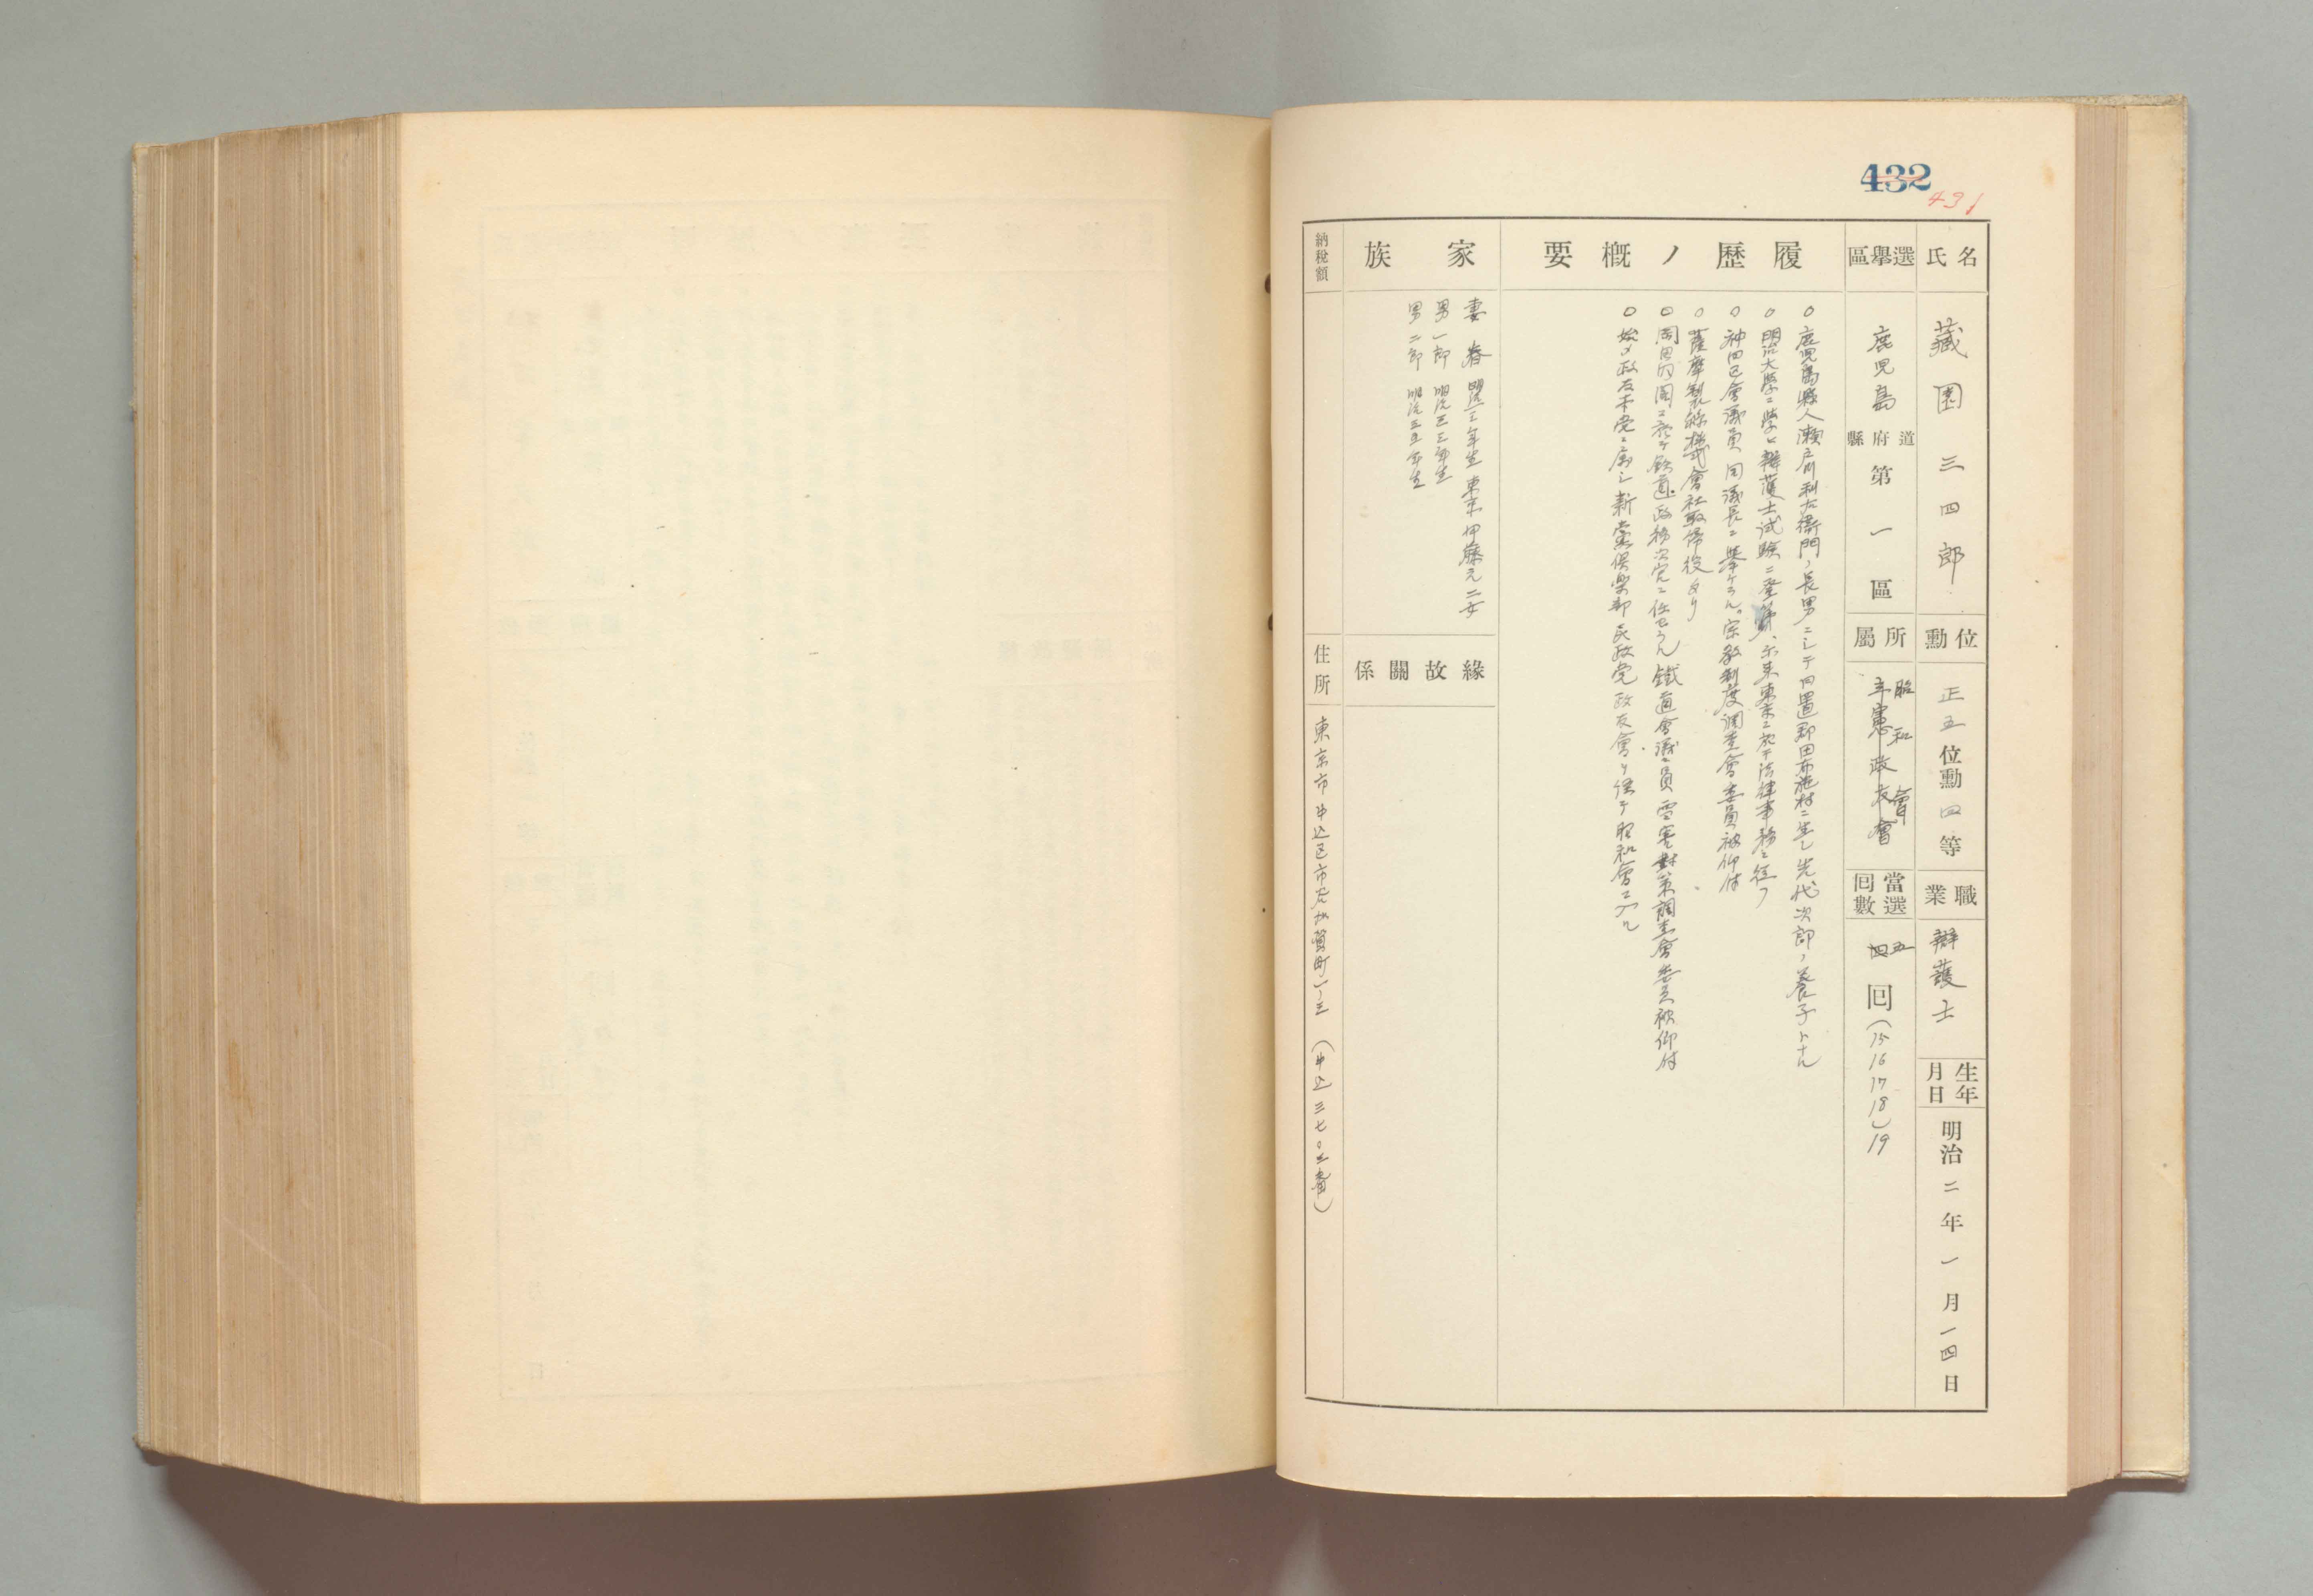 432
431
氏名
藏園三四郎
位勳
正五位勳四等
職業
辯護士
生年月日
明治二年一月一四日
選擧區
鹿児島道府縣第一區
所屬
昭和會
立憲政友會
當選回數
五
四回(15 16 17 18)19
履歷ノ概要
○鹿児島縣人瀬戸川利右衛門ノ長男ニシテ日置郡田布施村ニ生レ先代次郎ノ養子トナル
○明治大學ニ學ヒ辯護士試験ニ登第、尓来東京ニ於テ法律事務ニ從フ
○神田區會議員、同議長ニ擧ケラル。宗教制度調査會委員被仰付
○薩摩製絲株式會社取締役タリ
○岡田内閣ニ於テ鉄道政務次官ニ任セラル 鐵道會議々員 雪害対策調査會委員被仰付
○始メ政友本党ニ属シ新党倶楽部民政党政友會ヲ経テ昭和會ニ入ル
家族
妻 春 明治一三年生 東京 伊藤元二女
男 一郎 明治三三年生
男 二郎 明治三五年生
緣故關係
納稅額
住所
東京市牛込區市ヶ谷加賀町一ノ三 (牛込三七〇三番)